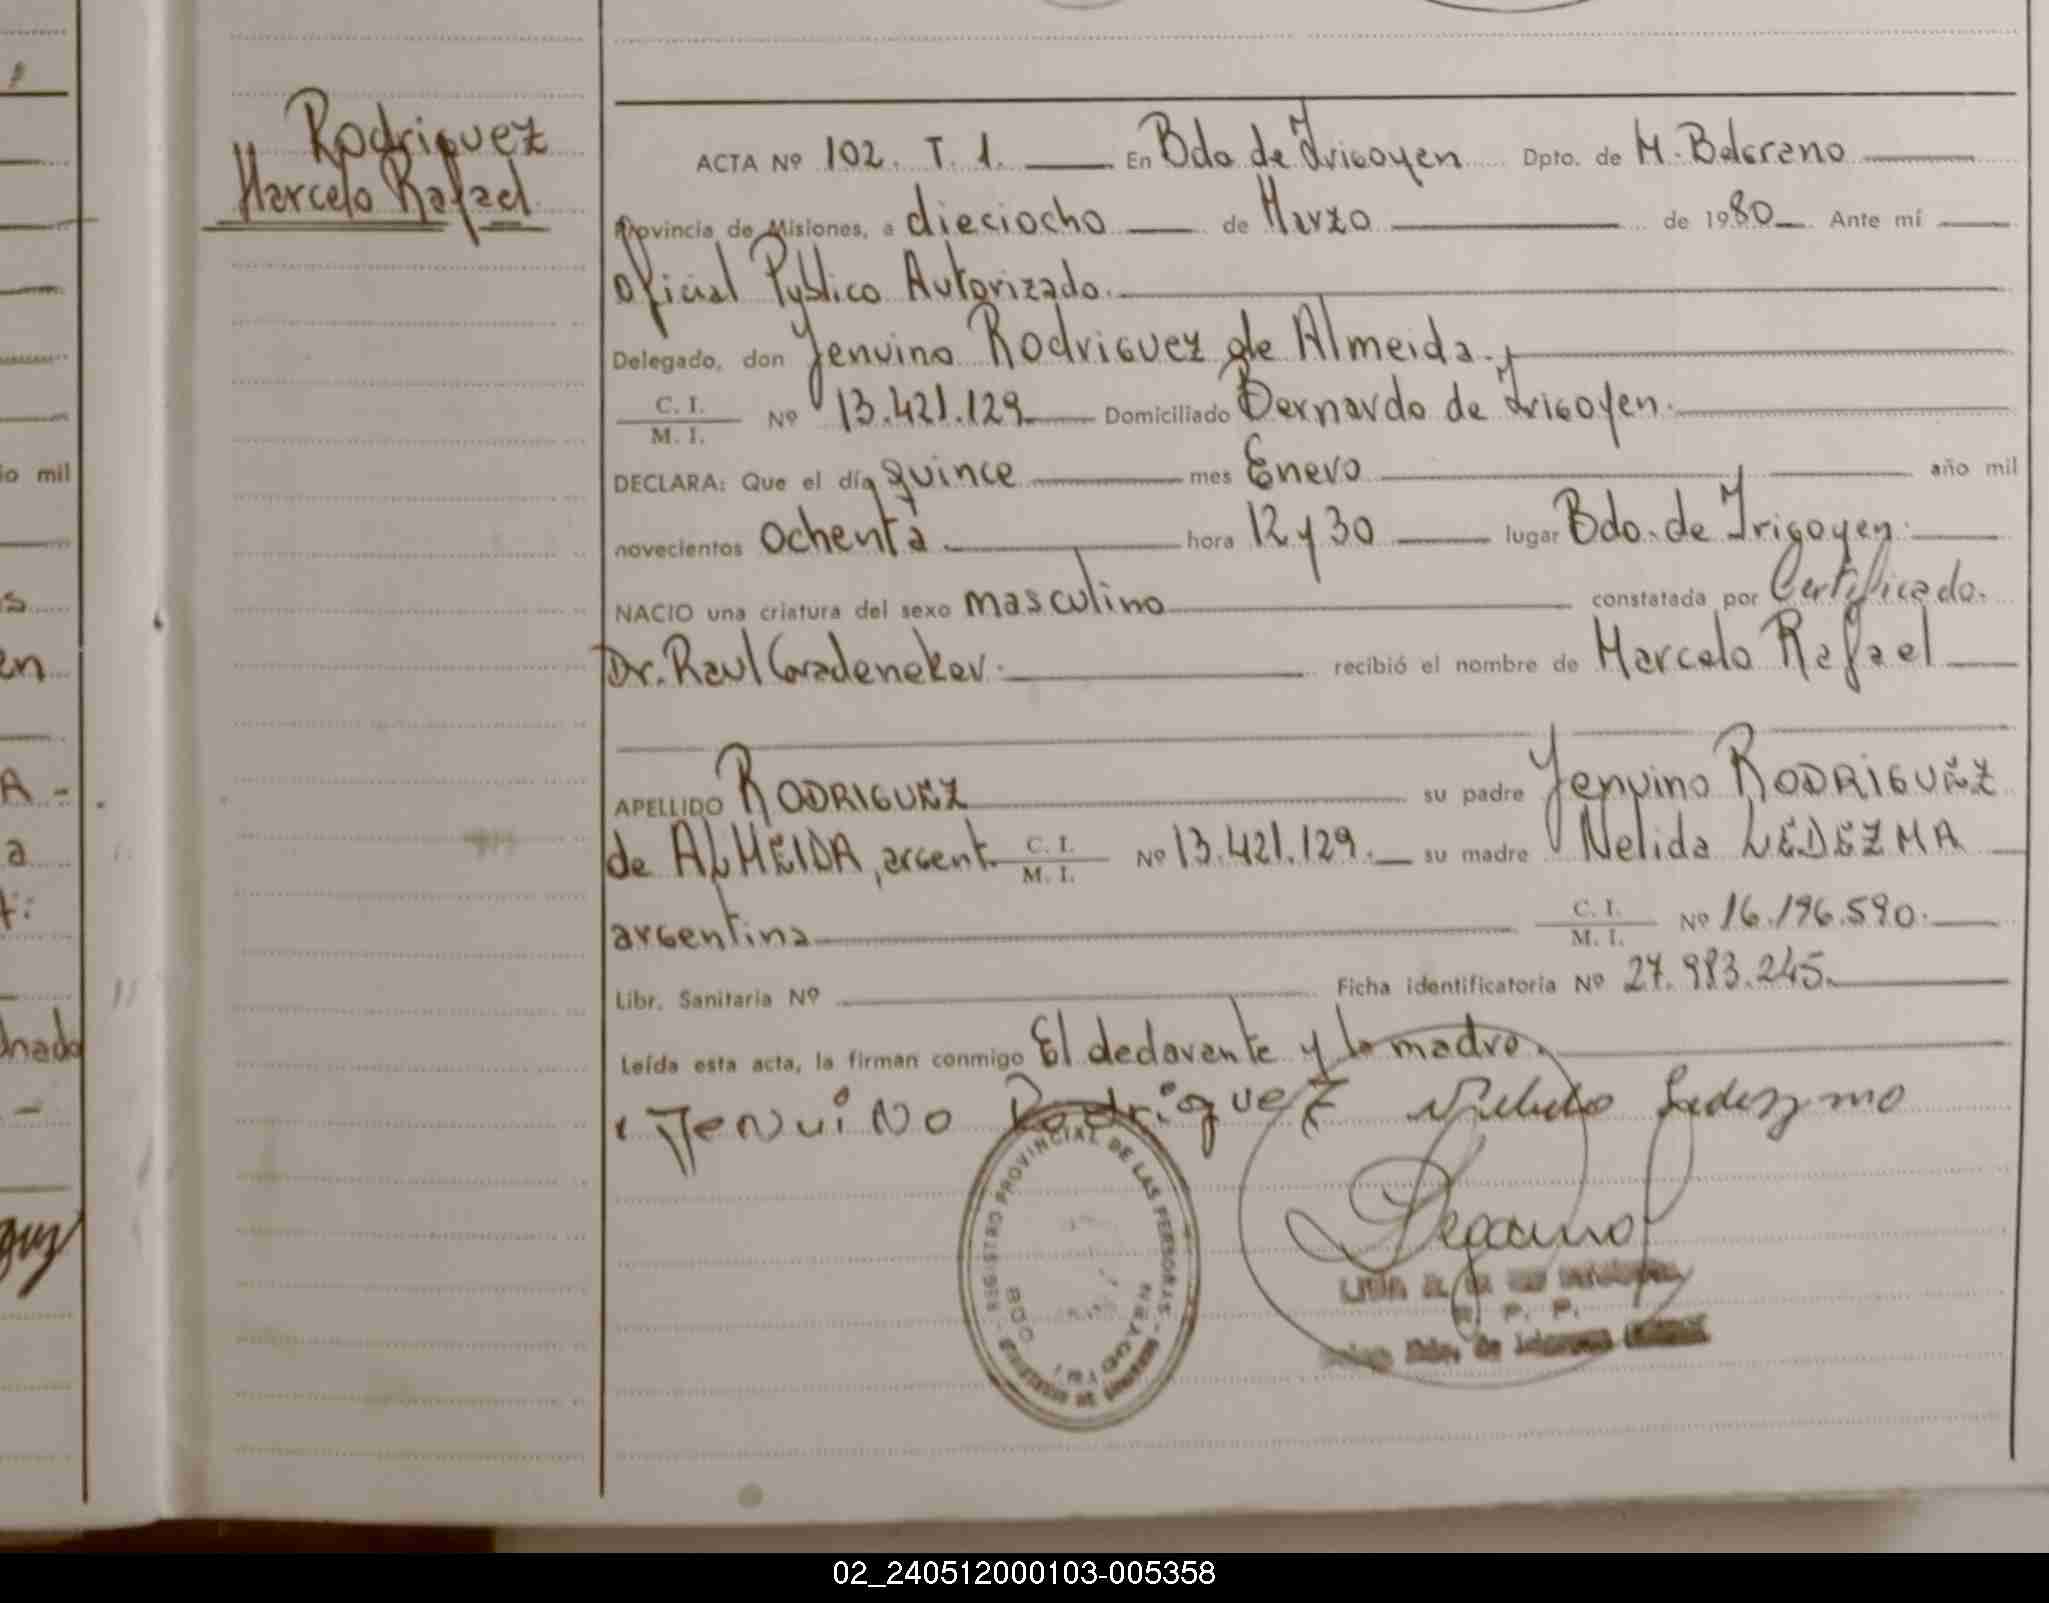 Rodriguez
Marcelo Rafael
ACTA Nº 102. T. 1. En Bdo de Irigoyen Dpto. de M. Belgrano
Provincia de Misiones, a dieciocho de Marzo de 1980 Ante mí
Oficial Publico Autorizado.
Delegado, don Jenuino Rodriguez de Almeida.
C. I.
M. I.
Nº 13.421.129 Domiciliado Bernardo de Irigoyen.
DECLARA: Que el día quince mes Enero año mil
novecientos ochenta hora 12 y 30 lugar Bdo. de Irigoyen.
NACIO una criatura del sexo masculino constatada por Certificado.
Dr. Raul recibió el nombre de Marcelo Rafael
APELLIDO RODRIGUEZ su padre Jenuino RODRIGUEZ
de ALMEIDA, argent. C. I.
M. I.
Nº 13.421.129. su madre Nelida LEDEZMA
argentina C. I.
M. I.
Nº 16.196.590.
Libr. Sanitaria Nº Ficha identificatoria Nº 27.983.245.
Leída esta acta, la firman conmigo El declarante y la madre.
Jenuino Rodriguez Ledezma
REGISTRO PROVINCIAL DE LAS PERSONAS
BDO
R. P. P.
io mil
s
en
A -
a
nado
guz
02_240512000103-005358